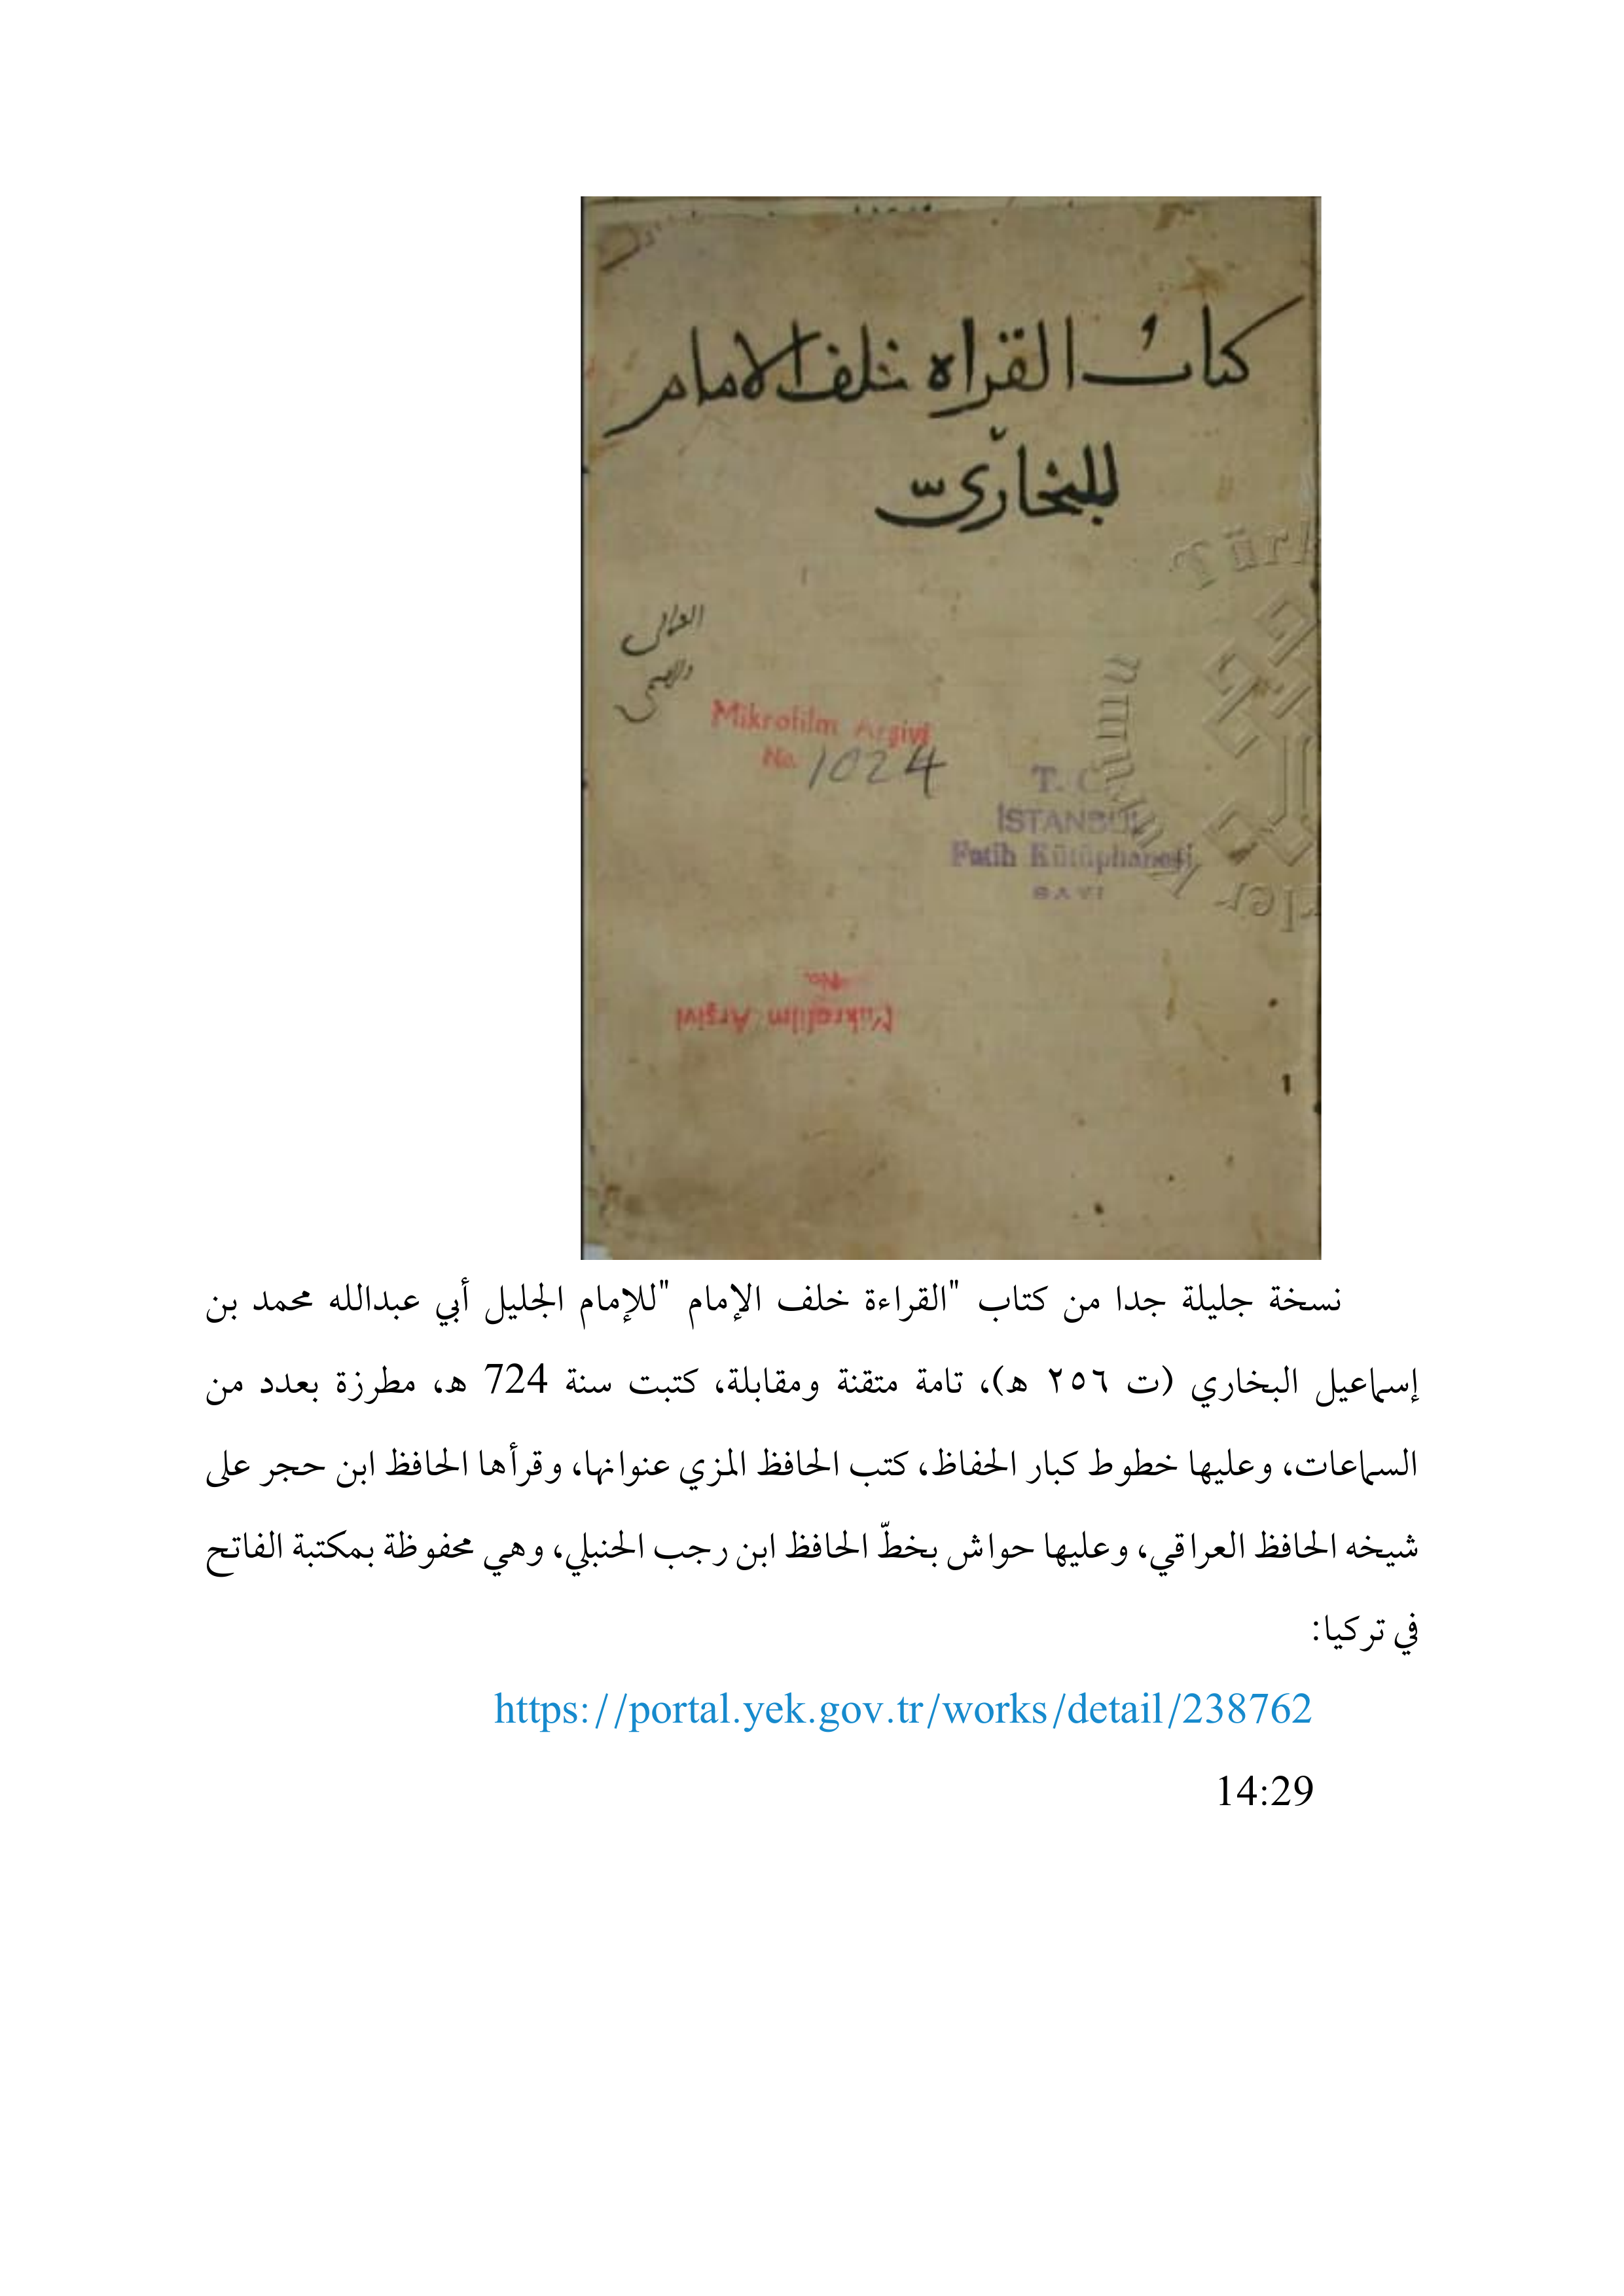 كتاب القراه خلف الامام
للبخاري
Mikrofilm Arşivi
No. 1024
T. C.
İSTANBUL
Fatih Kütüphanesi
SAYI
No.
Mikrofilm Arşivi
1
نسخة جليلة جدا من كتاب "القراءة خلف الإمام "للإمام الجليل أبي عبدالله محمد بن
إسماعيل البخاري (ت ٢٥٦ هـ)، تامة متقنة ومقابلة، كتبت سنة 724 هـ، مطرزة بعدد من
السماعات، وعليها خطوط كبار الحفاظ، كتب الحافظ المزي عنوانها، وقرأها الحافظ ابن حجر على
شيخه الحافظ العراقي، وعليها حواش بخطّ الحافظ ابن رجب الحنبلي، وهي محفوظة بمكتبة الفاتح
في تركيا:
https://portal.yek.gov.tr/works/detail/238762
14:29